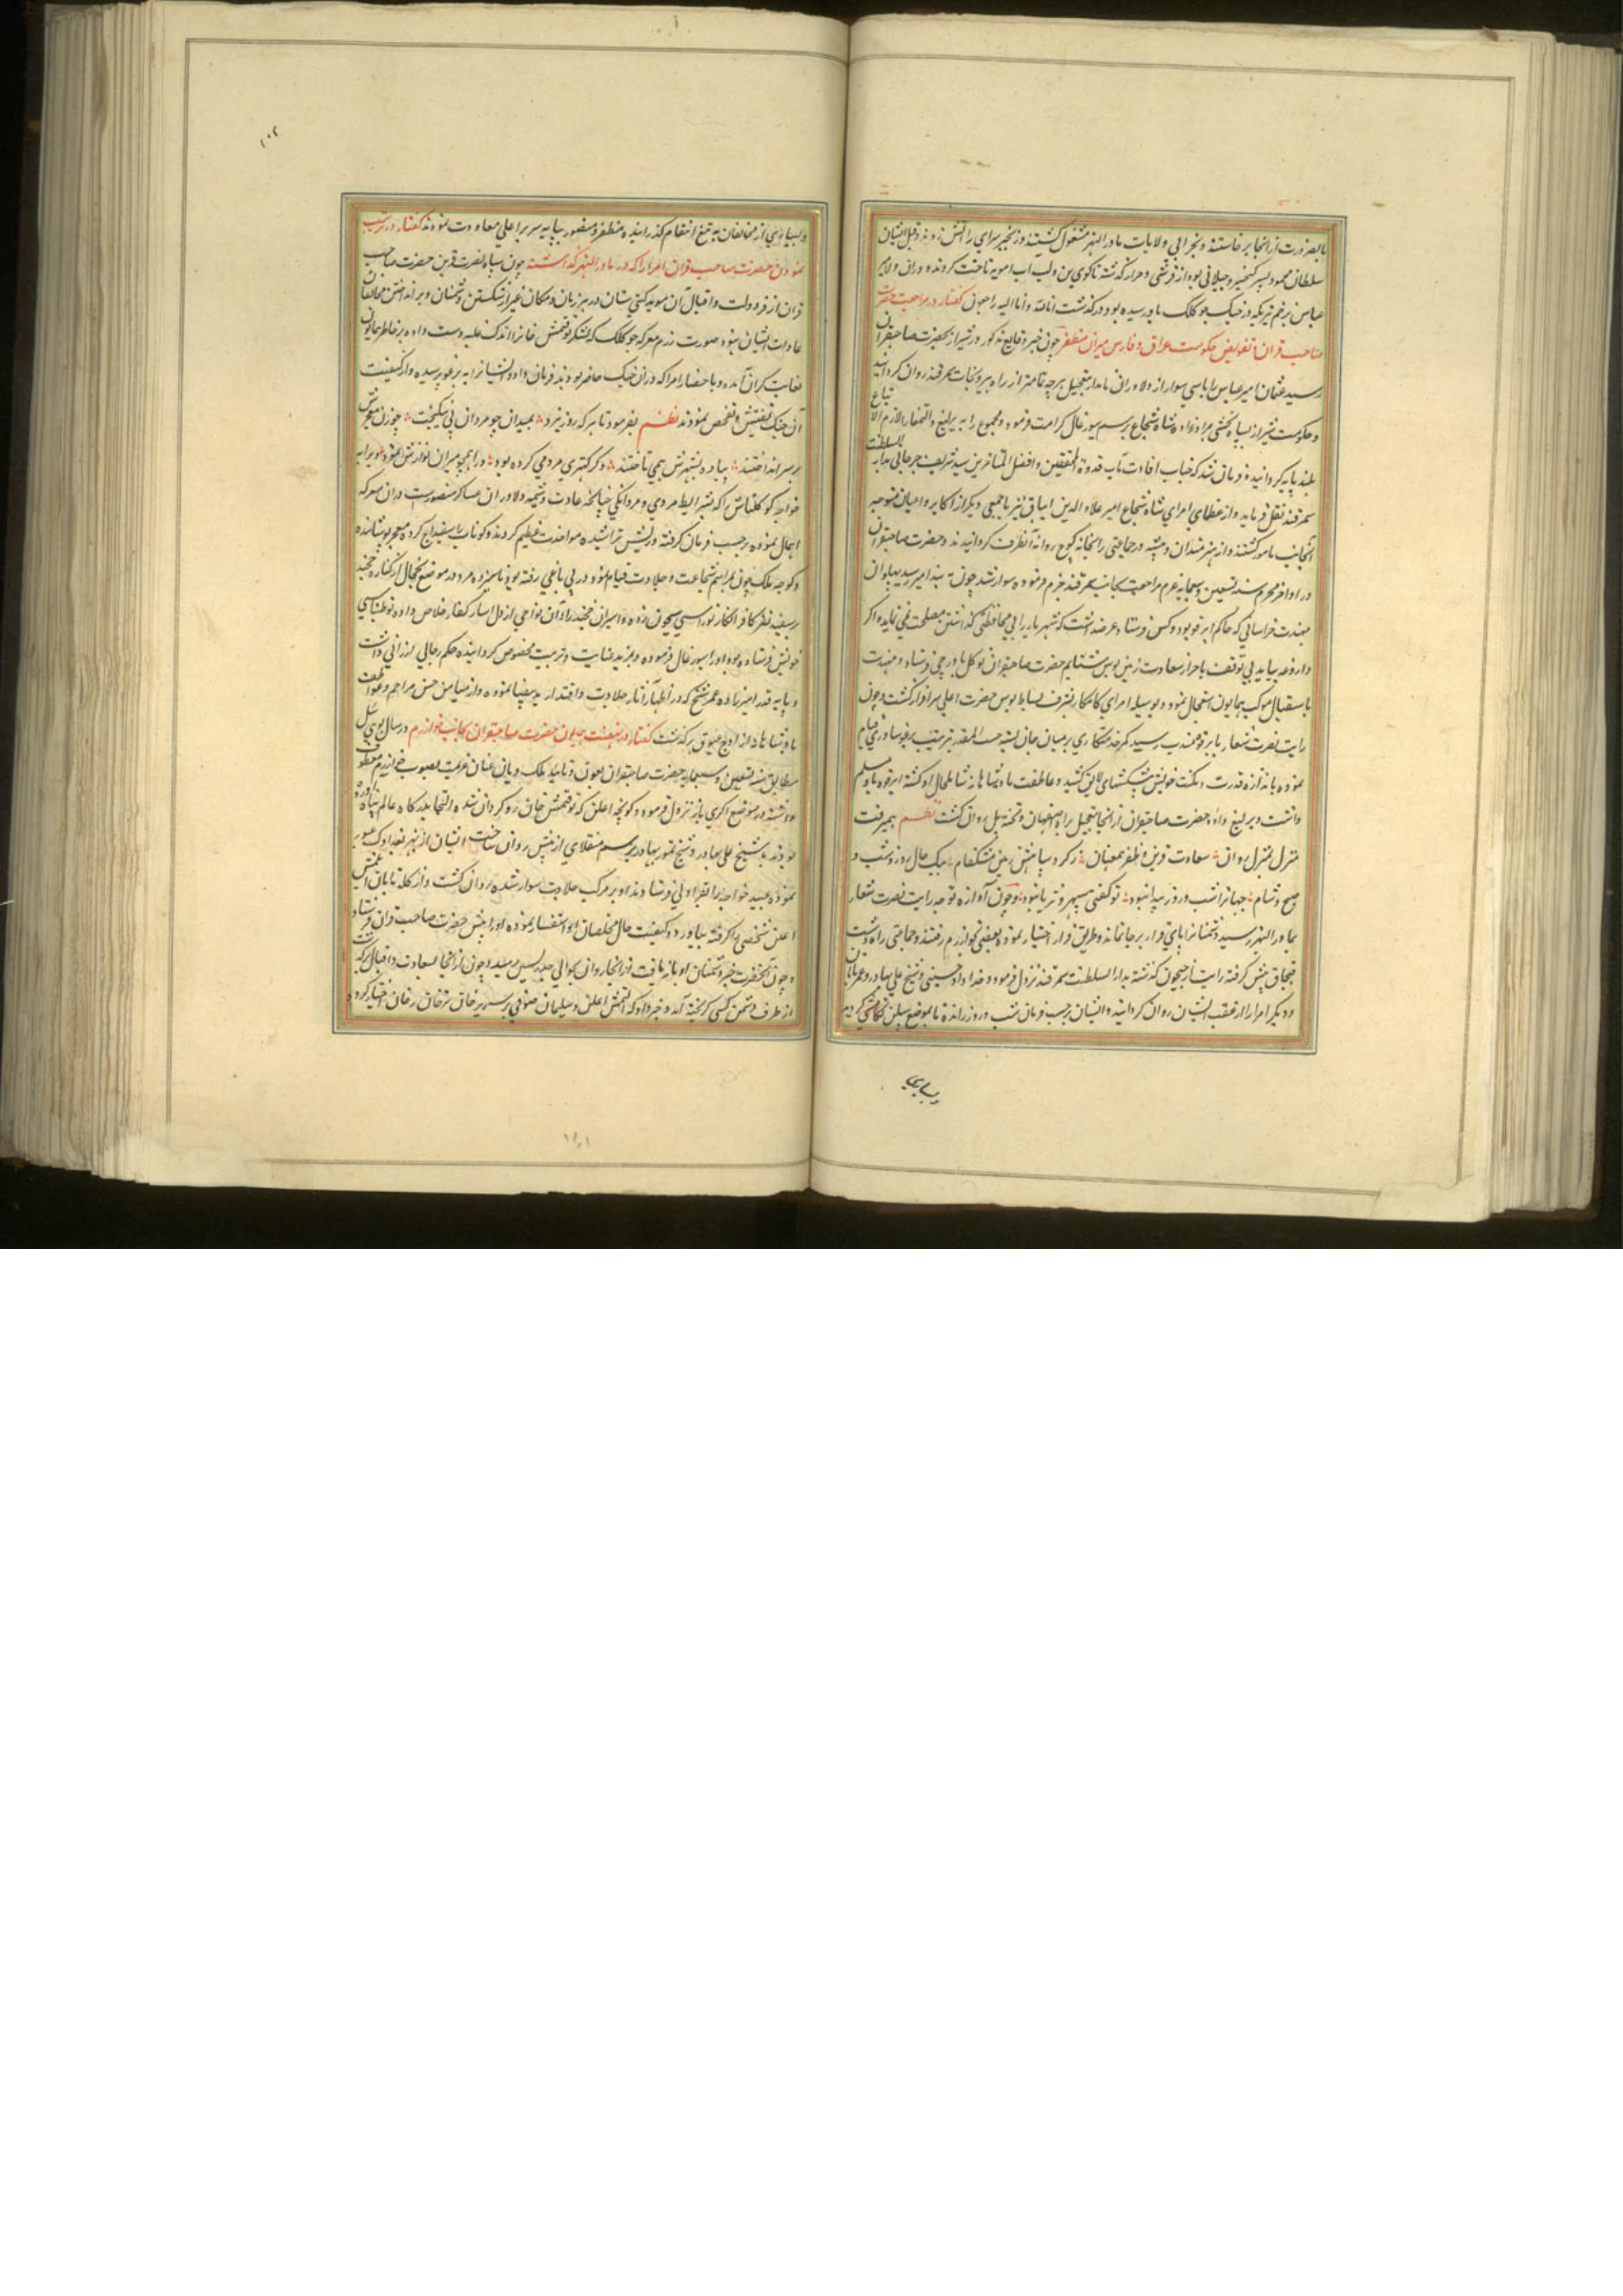 بالضرورت از انجا برخاستند و بخرابی ولایات ماوراالنهر مشغول گشتند و زنجیر سرای را آتش زدند و قبل ایشان
سلطان محمود پسر کیخسرو جیلانی بود از قرشی و حزار گذشته تا کوی تن و لب آب امویه تاخت کردند و دران ولا امیر
عباس بزخم تیر که در جنک جوکلک باو رسیده بود در گذشت انالله وانا الیه راجعون گفتار در مراجعت حضرت
صاحب قران و تفویض حکومت عراق و فارس بمیران مظفر چون خبر وقایع مذکور در شیراز بحضرت صاحبقران
رسید عثمان امیر عباس را باسی سوار از دلاوران نامدار بتعجیل هرچه تمامتر از راه یزد بجانب سمرقند روان گردانید
و حکومت شیراز بشاه یحیی برادرزاده شاه شجاع برسم سیورغال کرامت فرمود و مجموع را به یرلیغ و التمغا لازم الاتباع
بلندپایه گردانید و فرمان شد که جناب افادت مآب قدوة المحققین و افضل المتاخرین سید شریف جرجانی بدارالسلطنت
سمرقند نقل فرماید و از عظمای امرای شاه شجاع امیر علاء الدین ایناق نیز با جمعی دیگر از اکابر و اعیان متوجه
آنجانب مامور گشتند و از هنرمندان و پیشه ور جماعتی را بخانه کوچ روانه آنطرف گردانیدند و حضرت صاحبقران
در اواخر محرم سنه تسعین و سبعمایه عزم مراجعت بجانب سمرقند جزم فرموده سوار شد چون به بند امیر رسید پهلوان
مهذب خراسانی که حاکم ابرقو بود و کس فرستاد و عرضه داشت که شهر را بی محافظتی گذاشتن مصلحت نمی نماید و اگر
داروغه بیاید بی توقف باحراز سعادت زمین بوس شتابم حضرت صاحبقران توکل باورچی فرستاد و مهذب
باستقبال موکب همایون استعجال نمود و بوسیله امرای کامکار بشرف بساط بوس حضرت اعلی سرافراز گشت و چون
رایت نصرت شعار بابرقو مهذب رسید کمر خدمتکاری بر میان جان بسته حسب المقدور بترتیب برغو ساوری قیام
نموده باندازه قدرت و مکنت خویش پیشکشهای لایق کشید و عاطفت پادشاهانه شامل حال او گشته ابرقوه باو مسلم
داشت و یرلیغ داد و حضرت صاحبقران از انجا بتعجیل براه اصفهان و تخته پل روان گشت نظم همیرفت
منزل بمنزل روان سعادت قرین و ظفر همعنان ز گرد سپاهش زمین مشکفام بیک حال روز و شب و
صبح و شام جهانرا شب و روز پیدا نبود تو گفتی سپهر و ثریا نبود و چون آوازه توجه رایت نصرت شعار
بماوراالنهر رسید دشمنانرا پای قرار بر جا نماند و طریق فرار اختیار نموده بعضی بخوارزم رفتند و جماعتی راه دشت
قبچاق پیش گرفته رایت از جیحون گذشته بدارالسلطنت سمرقند نزول فرمود و خداداد حسینی و شیخ علی بهادر و عمر تابان
و دیگر امرا را از عقب ایشان روان گردانید و ایشان برحسب فرمان شب و روز رانده تا بموضع سیلن تکامشی کردند
و بسیاری
۱۰۲
و بسیاری از مخالفان به تیغ انتقام گذرانیده مظفر و منصور بپایه سریر اعلی معاودت نمودند گفتار در
نمودن حضرت صاحب قران امرا را که در ماوراالنهر گذاشته چون سپاه نصرت قرین حضرت صاحب
قران از فر دولت و اقبال آن موید گیتی ستان در هر زمان و مکان غیر از شکستن دشمنان و برانداختن مخالفان
عادت ایشان نبود صورت رزم معرکه جوکلک که لشکر توقتمش خانرا اندک غلبه دست داده بر خاطر همایون
بغایت گران آمده و باحضار امرا که در آن جنک حاضر بودند فرمان داد و ایشانرا به یرغو پرسیده و از کیفیت
آن جنک تفتیش و تفحص نمودند نظم بفرمود تا هر که روز نبرد بمیدان چو مردان پی
بر سر انداختند پیاده بشهرش همی تاختند دگر کهتری مردمی کرده بود
خواجه کوکلتاش را که بشرایط مردی و مردانگی چنانکه عادت و شیمه دلاوران عساکر منصورست دران معرکه
اهمال نموده برحسب فرمان گرفته و ریش تراشیده مواخذت عظیم کردند و سفیداج کرده معجر پوشانده
و کوچه ملک چون بمراسم شجاعت و جلادت قیام نموده در پی یاغی رفته بود با سیزده مرد در موضع از کناره خجند
بر سیصد نفر کافر زده و اسیران خجند را و آن نواحی از ذل اسار کفار خلاص داده
خویش فرستاده بود او را سیورغال فرموده و بمزید عنایت و تربیت مخصوص گردانیده حکم ترخانی ارزانی داشت
و پایه قدر امیرزاده عمر شیخ که در اظهار آثار جلادت و اقتدار ید بیضا نموده و از میامن حسن مراحم و عواطف
پادشاهانه از اوج عیوق برگذشت گفتار در نهضت همایون حضرت صاحبقران بجانب خوارزم در سال
مطابق سنه تسعین و سبعمایه حضرت صاحبقران بعون و تایید ملک دیان عنان عزیمت بصوب خوارزم معطوف
داشته در موضع اکری یار نزول فرمود و کونچه اعلن که توقتمش خان روگردان شده التجا بدرگاه عالم پناه آورده
بودند با شیخ علی بهادر و شیخ تمور بهادر برسم منقلای از پیش روان ساخت ایشان از نهر بغدادک عبور
نموده عید خواجه را بقراولی فرستادند او بر مرکب جلادت سوار شده روان گشت و از گله بانان ایلتمش
اعلن شخصی را گرفته بیاورد و کیفیت حال مخالفان از او استفسار نموده او را پیش حضرت صاحب قران فرستاد
و چون آنحضرت خبر دشمنان او باز یافت از انجا روان بحوالی جدریس رسید و چون از انجا بسعادت و اقبال برگشت
از طرف دشمن کسی گریخته آمد و خبر داد که ایلتمش اعلن و سلیمان صوفی